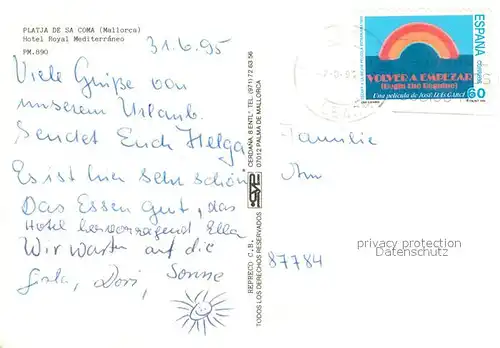 PLATJA DE SA COMA (Mallorca)
Hotel Royal Mediterráneo
PM.890
31.6.95
Viele Grüße von
unserem Urlaub.
Sendet Euch Helga
Es ist hier sehr schön
Das Essen gut, das
Hotel hervorragend Ella
Wir warten auf die
Dori, Sonne
CERDAÑA, 8 ENTL° TEL. (971) 72 63 56
07012 PALMA DE MALLORCA
REPRECO C.B.
TODOS LOS DERECHOS RESERVADOS
ESPAÑA
CORREOS
VOLVER A EMPEZAR
(Begin the Beguine)
60
Una película de José Luis Garci
Familie
Am
87784
privacy protection
Datenschutz